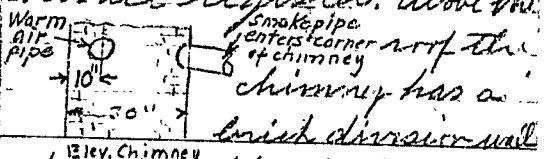 above the
Warm
air
pipe
smokepipe
enters corner
of chimney
roof the
10"
chimney has a
30"
brick division wall
Elev. Chimney